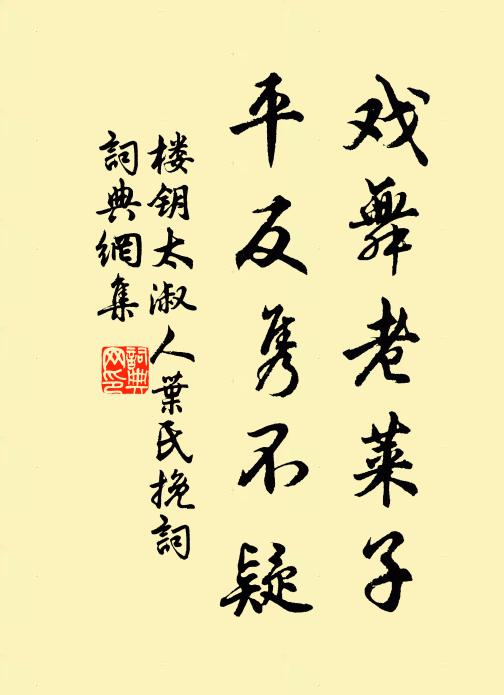 戏舞老莱子
平反隽不疑
楼钥太淑人葉氏挽詞
詞典網集
詞典网印